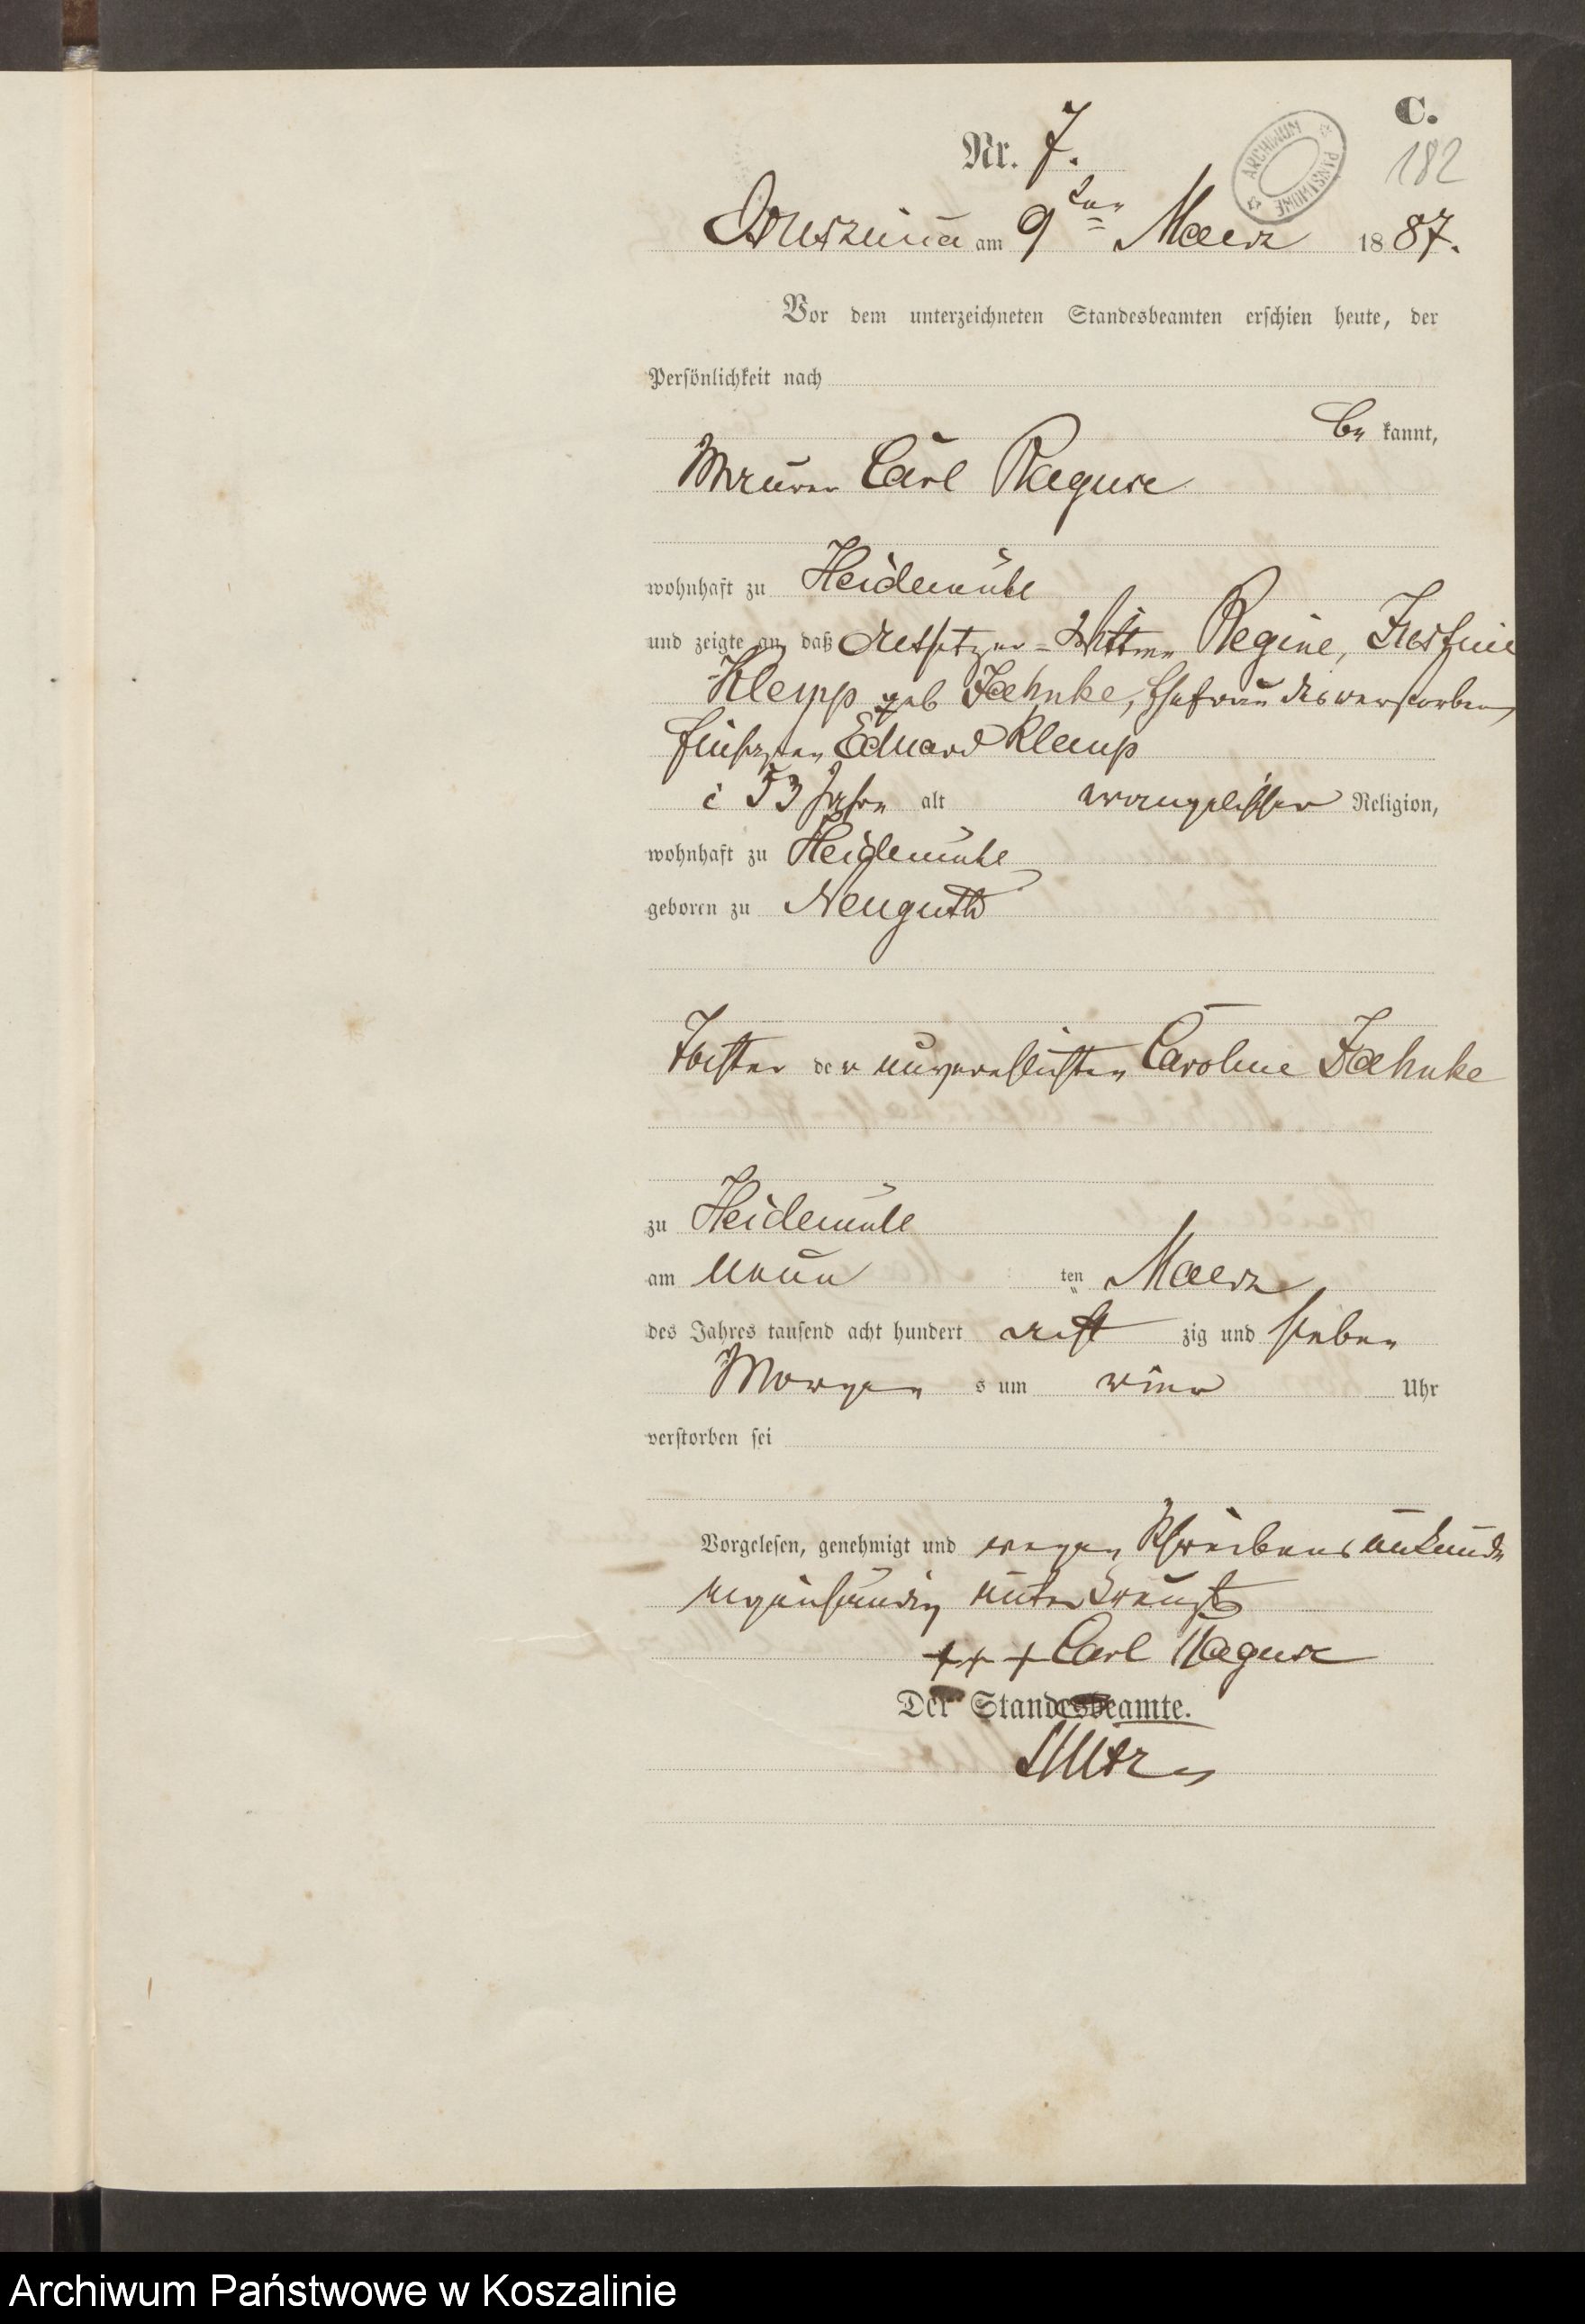 C.
Nr. 7.
182
ARCHIWUM PAŃSTWOWE
am 9ten Maerz 1887.
Vor dem unterzeichneten Standesbeamten erschien heute, der
Persönlichkeit nach
be kannt,
Maurer Carl Raguse
wohnhaft zu Heidemühl
und zeigte an, daß Altsitzer=Wittwe Regine, Justine
Klemp geb Jahnke, Ehefrau des verstorbenen
Eduard Klemp
53 Jahre alt evangelischer Religion,
wohnhaft zu Heidemühl
geboren zu Neuguth
Tochter der unverehlichten Caroline Jahnke
zu Heidemühl
am neun ten Maerz
des Jahres tausend acht hundert acht zig und sieben
Morgen s um vier Uhr
verstorben sei
Vorgelesen, genehmigt und wegen Schreibensunkunde
eigenhändig unterkreuzt
+++ Carl Raguse
Der Standesbeamte.